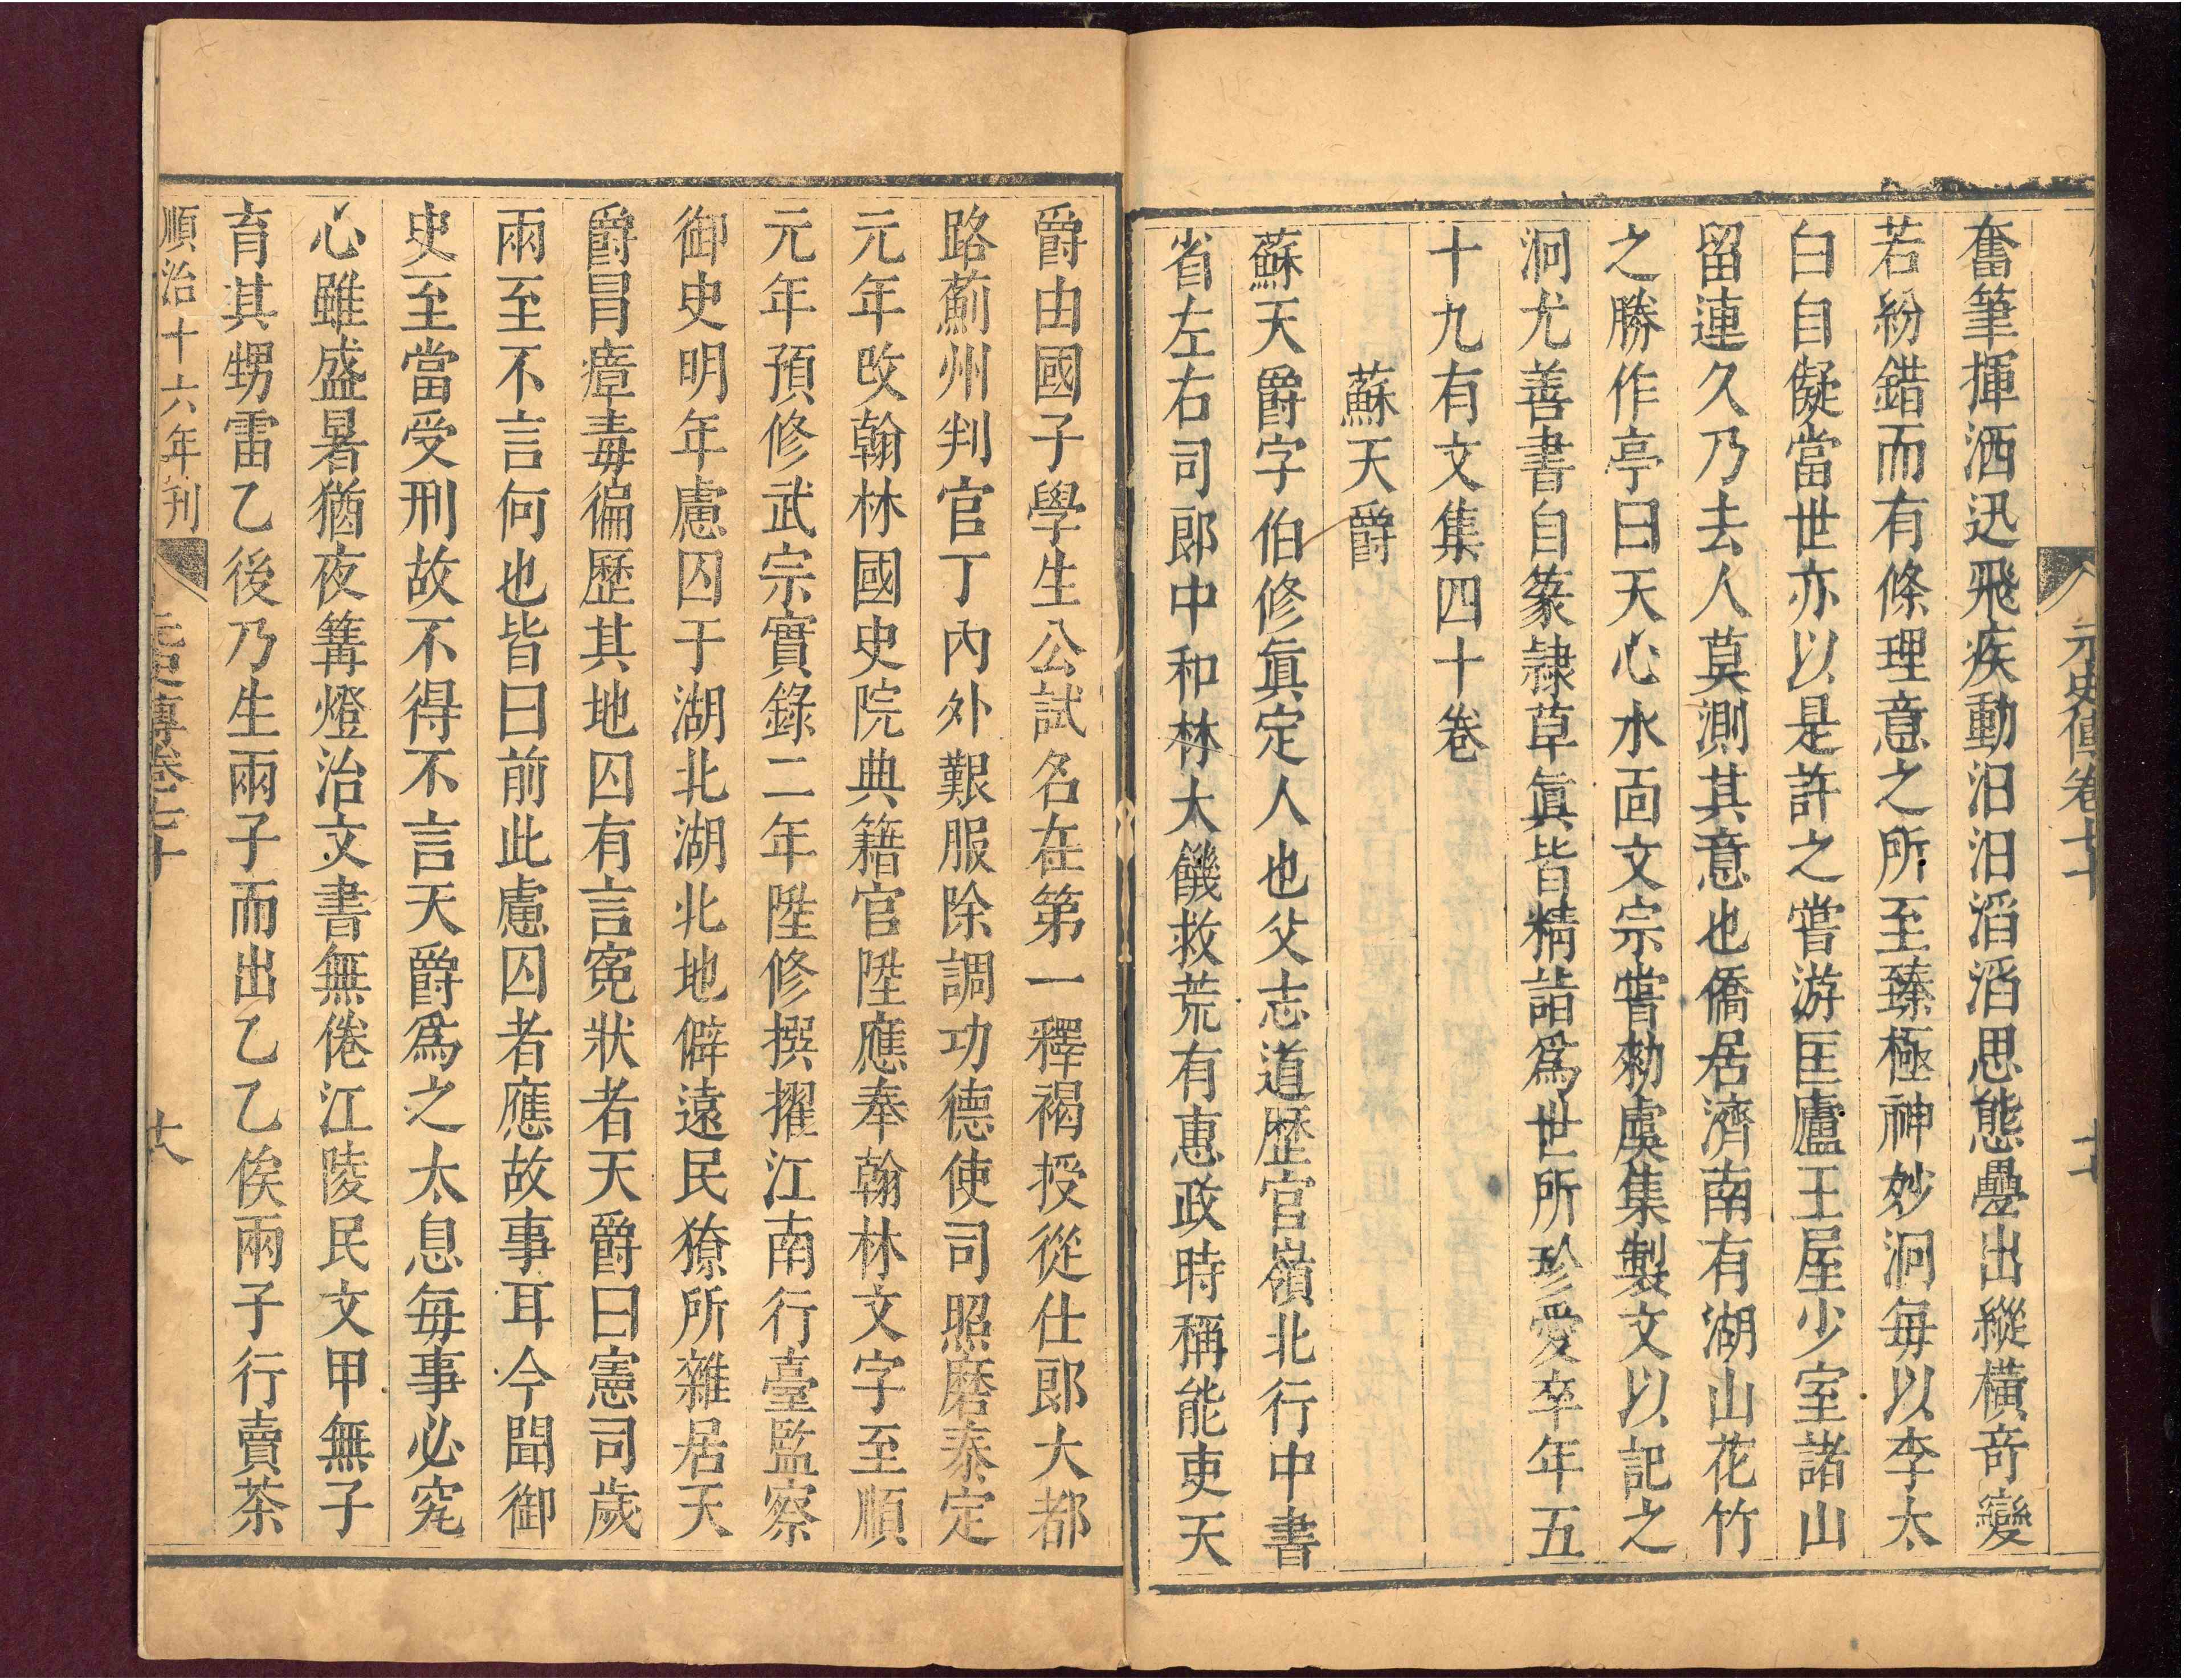 元史傳卷七十
十七
奮筆揮洒迅飛疾動汨汨滔滔思態疊出縱橫奇變
若紛錯而有條理意之所至臻極神妙泂每以李太
白自儗當世亦以是許之嘗游匡廬王屋少室諸山
留連久乃去人莫測其意也僑居濟南有湖山花竹
之勝作亭曰天心水面文宗嘗勑虞集製文以記之
泂尤善書自篆隷草眞皆精詣爲世所珍愛卒年五
十九有文集四十卷
蘇天爵
蘇天爵字伯修眞定人也父志道歷官嶺北行中書
省左右司郎中和林大饑救荒有惠政時稱能吏天
爵由國子學生公試名在第一釋褐授從仕郎大都
路薊州判官丁內外艱服除調功德使司照磨泰定
元年改翰林國史院典籍官陞應奉翰林文字至順
元年預修武宗實錄二年陞修撰擢江南行臺監察
御史明年慮囚于湖北湖北地僻遠民獠所雜居天
爵冒瘴毒徧歷其地囚有言寃狀者天爵曰憲司歲
兩至不言何也皆曰前此慮囚者應故事耳今聞御
史至當受刑故不得不言天爵爲之太息每事必究
心雖盛暑猶夜篝燈治文書無倦江陵民文甲無子
育其甥雷乙後乃生兩子而出乙乙俟兩子行賣茶
順治十六年刋
元史傳卷七十
十八